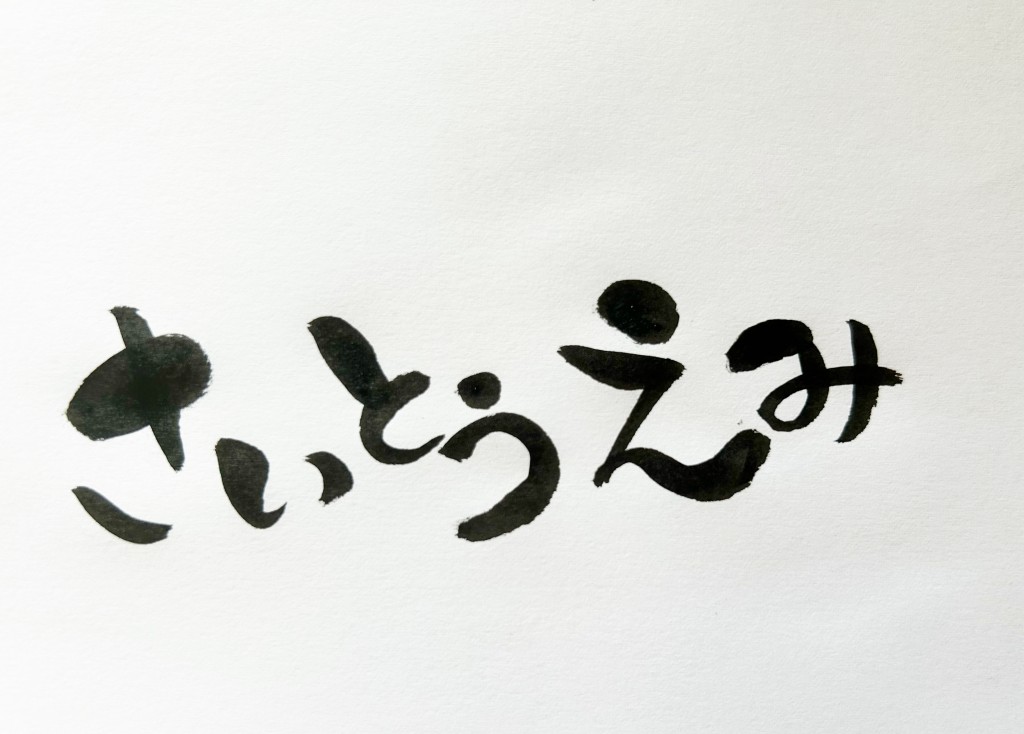 さいとうえみ